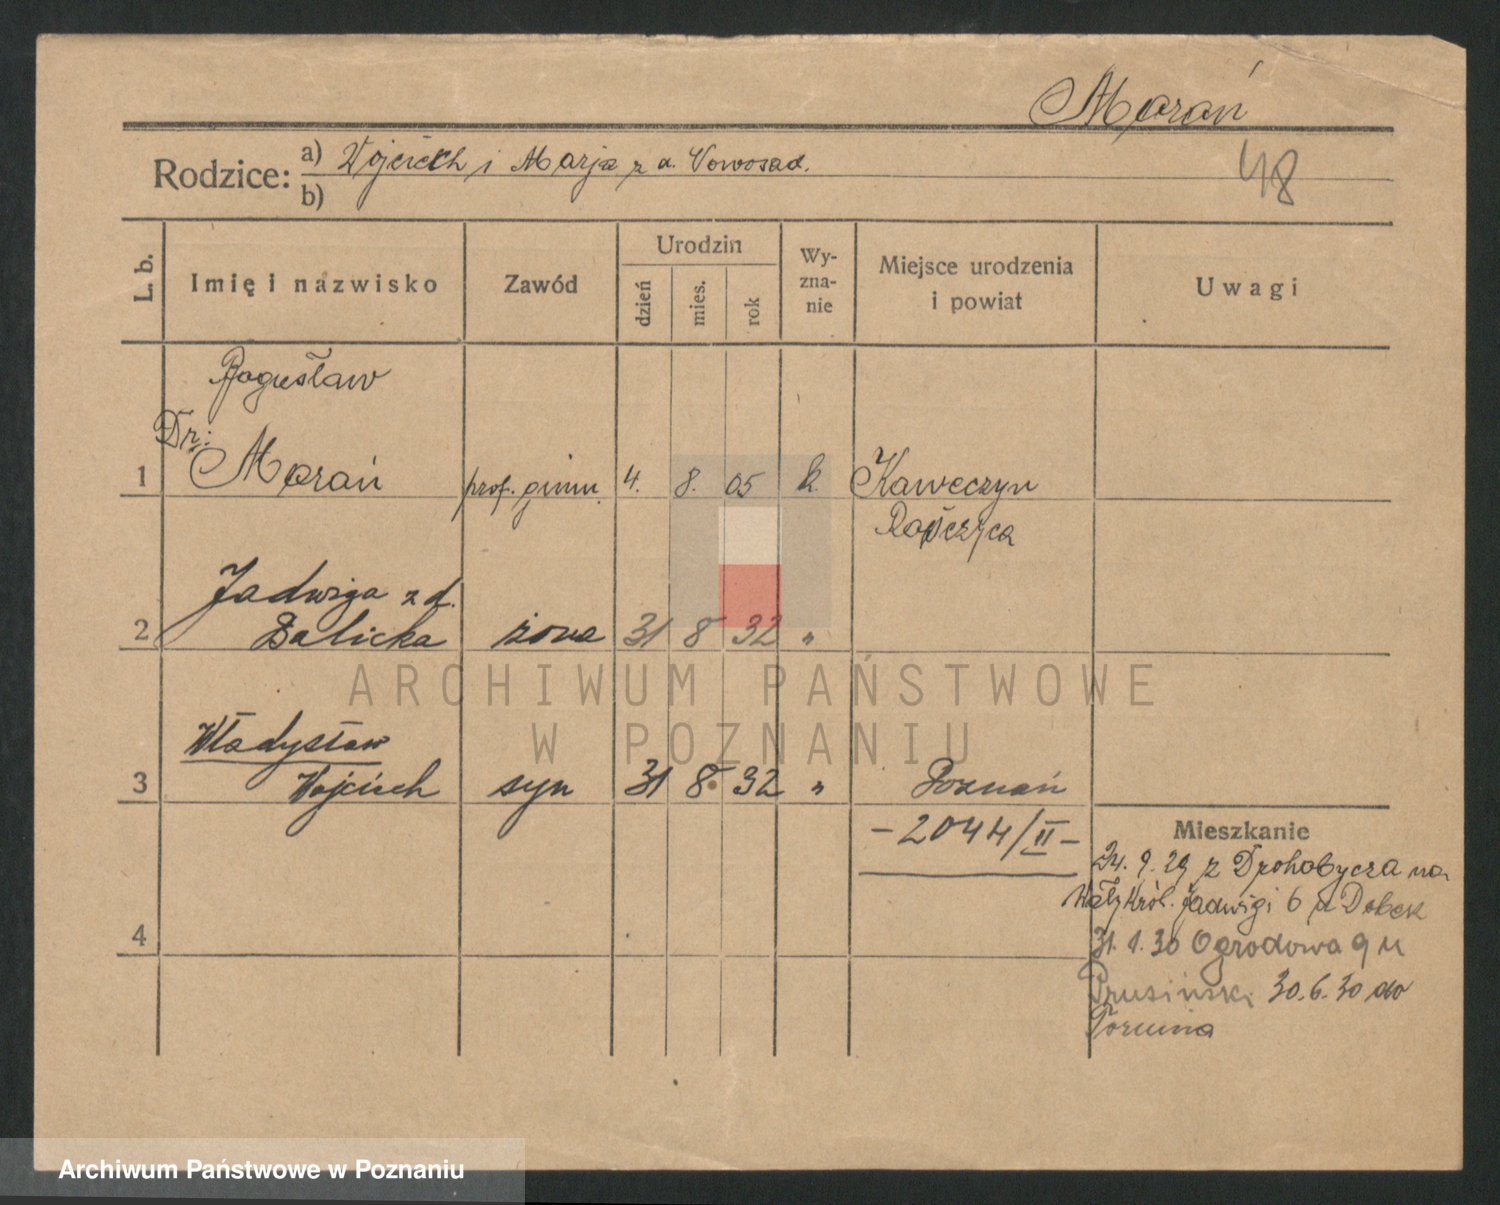 Morań
Rodzice:
a) Wojciech i Marja z d. Nowosad.
b)
48
L. b.
Imię i nazwisko
Zawód
Urodzin
dzień
mies.
rok
Wy-
zna-
nie
Miejsce urodzenia
i powiat
Uwagi
Bogusław
Dr:
1 Morań prof. gimn. 4. 8. 05 k. Kaweczyn
Ropczyca
Jadwiga z d.
2 Balicka żona 31 8 32 "
ARCHIWUM PAŃSTWOWE
W POZNANIU
Władysław
3 Wojciech syn 31 8 32 " Poznań
-2044/II-
Mieszkanie
24. 9. 29 z Drohobycza na
Wały Król. Jadwigi 6 u Dobek
4
31. 1. 30 Ogrodowa 9 u
Prusiński 30. 6. 30 do
Torunia
Archiwum Państwowe w Poznaniu